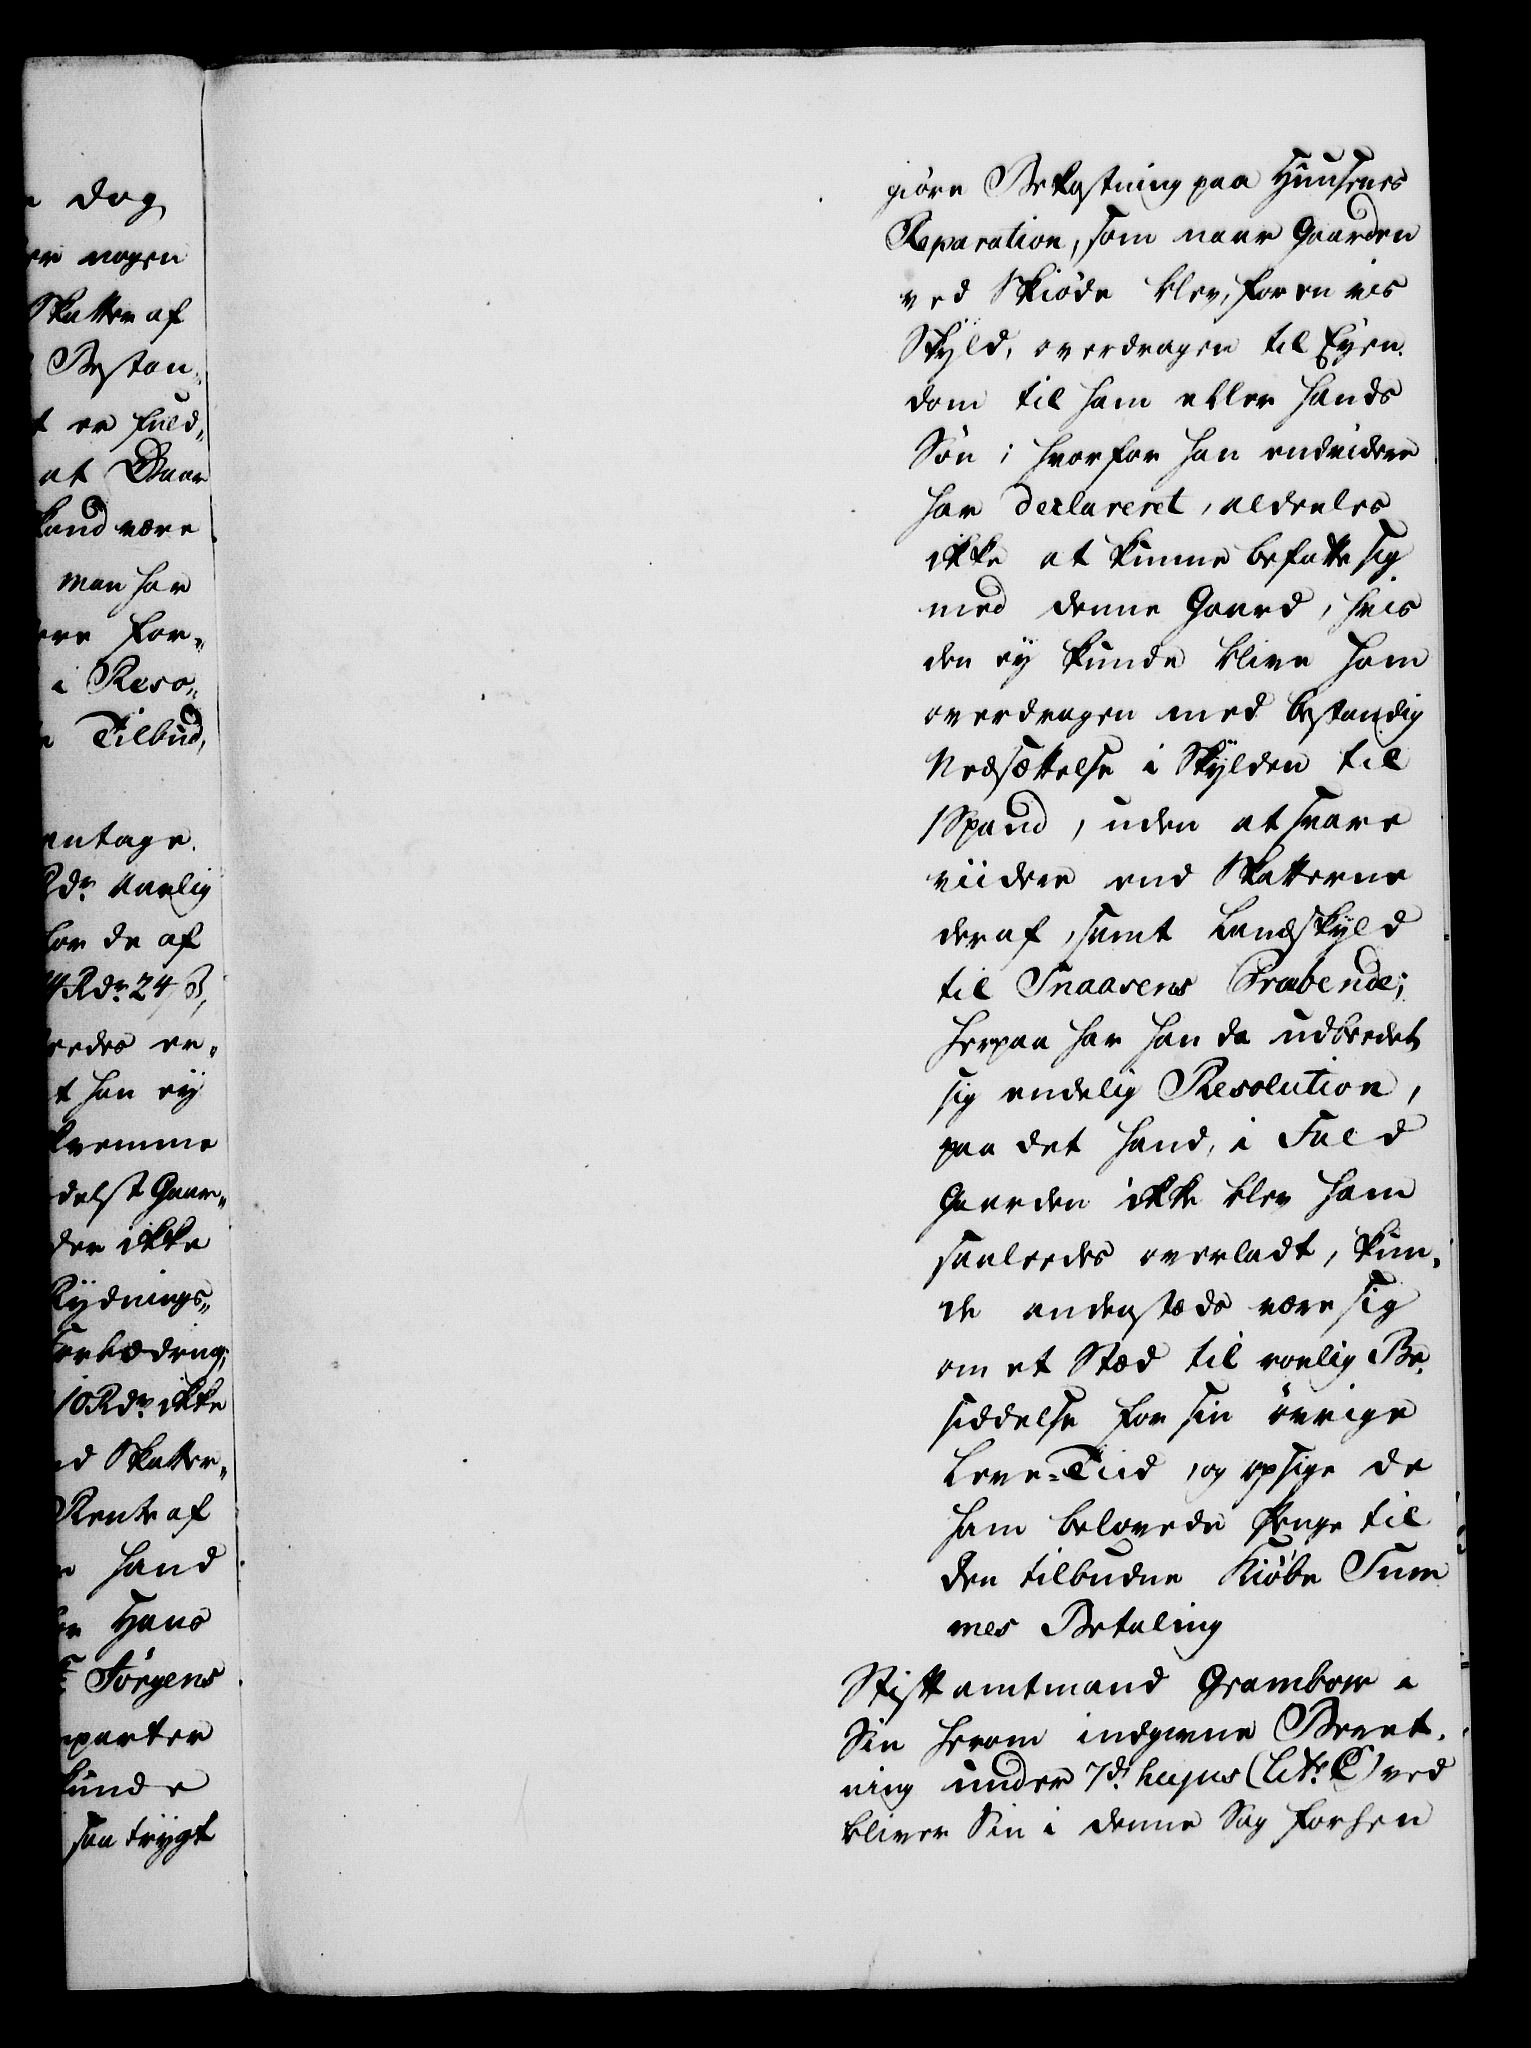 dog
nogen
Skatter af
Bestan„
t er fuld„
at Baar
kand være
man har
ere for„
i Reso„
Tilbud,
entage.
Rdr. Aarlig
for de af
4 Rdr. 24 ß,
ledes er„
t han ey
fremme
delst Gaar„
der ikke
Rydnings„
Forbædring;
10 Rdr. ikke
nd Skatter„
Rente af
hand
Hans
Jörgens
parter
kunde
saa trygt
giöre Bekostning paa Huusenes
Reparation, som naar Gaarden
ved Skiöde blev, for en vis
Skyld, overdragen til Eyen„
dom til ham eller hands
Sön; hvorfor han endvidere
har declareret, aldeeles
ikke at kunne befatte sig
med denne Gaard, hvis
den ey kunde blive ham
overdragen med bestandig
Nedsættelse i Skylden til
1 Spand, uden at svare
viidere end Skatterne
deraf, samt Landskyld
til Snaasens Præbende;
herpaa har han da udbeedet
sig endelig Resolution,
paa det hand, i Fald
Gaarden ikke blev ham
saaleedes overladt, kun„
de andenstæds være sig
om et Stæd til roelig Be„
siddelse for sin övrige
Leve-Tiid, og opsige de
ham belovede Penge til
den tilbudne Kiöbe Sum
mes Betaling
Stiftamtmand Grambow i
Sin herom indgivne Beret„
ning under 7de hujus (Litr. C) ved
bliver Sin i denne Sag forhen